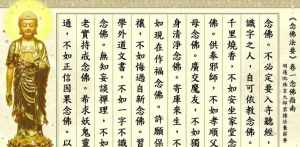 《念佛法要》卷一念佛指南
念佛。不必定要入寺聽經，
識字之人，自可依教念佛。
千里燒香。不如安坐家堂念
佛。供奉邪師，不如孝順父
母念佛。廣交魔友，不如獨
身清淨念佛。寄庫來生，不
如現在作福念佛。許願保
禳，不如悔過自新念佛。習
學外道文書。不如一字不識
念佛。無知妄談禪理，不如
老實持戒念佛。希求妖鬼靈
通，不如正信因果念佛。以